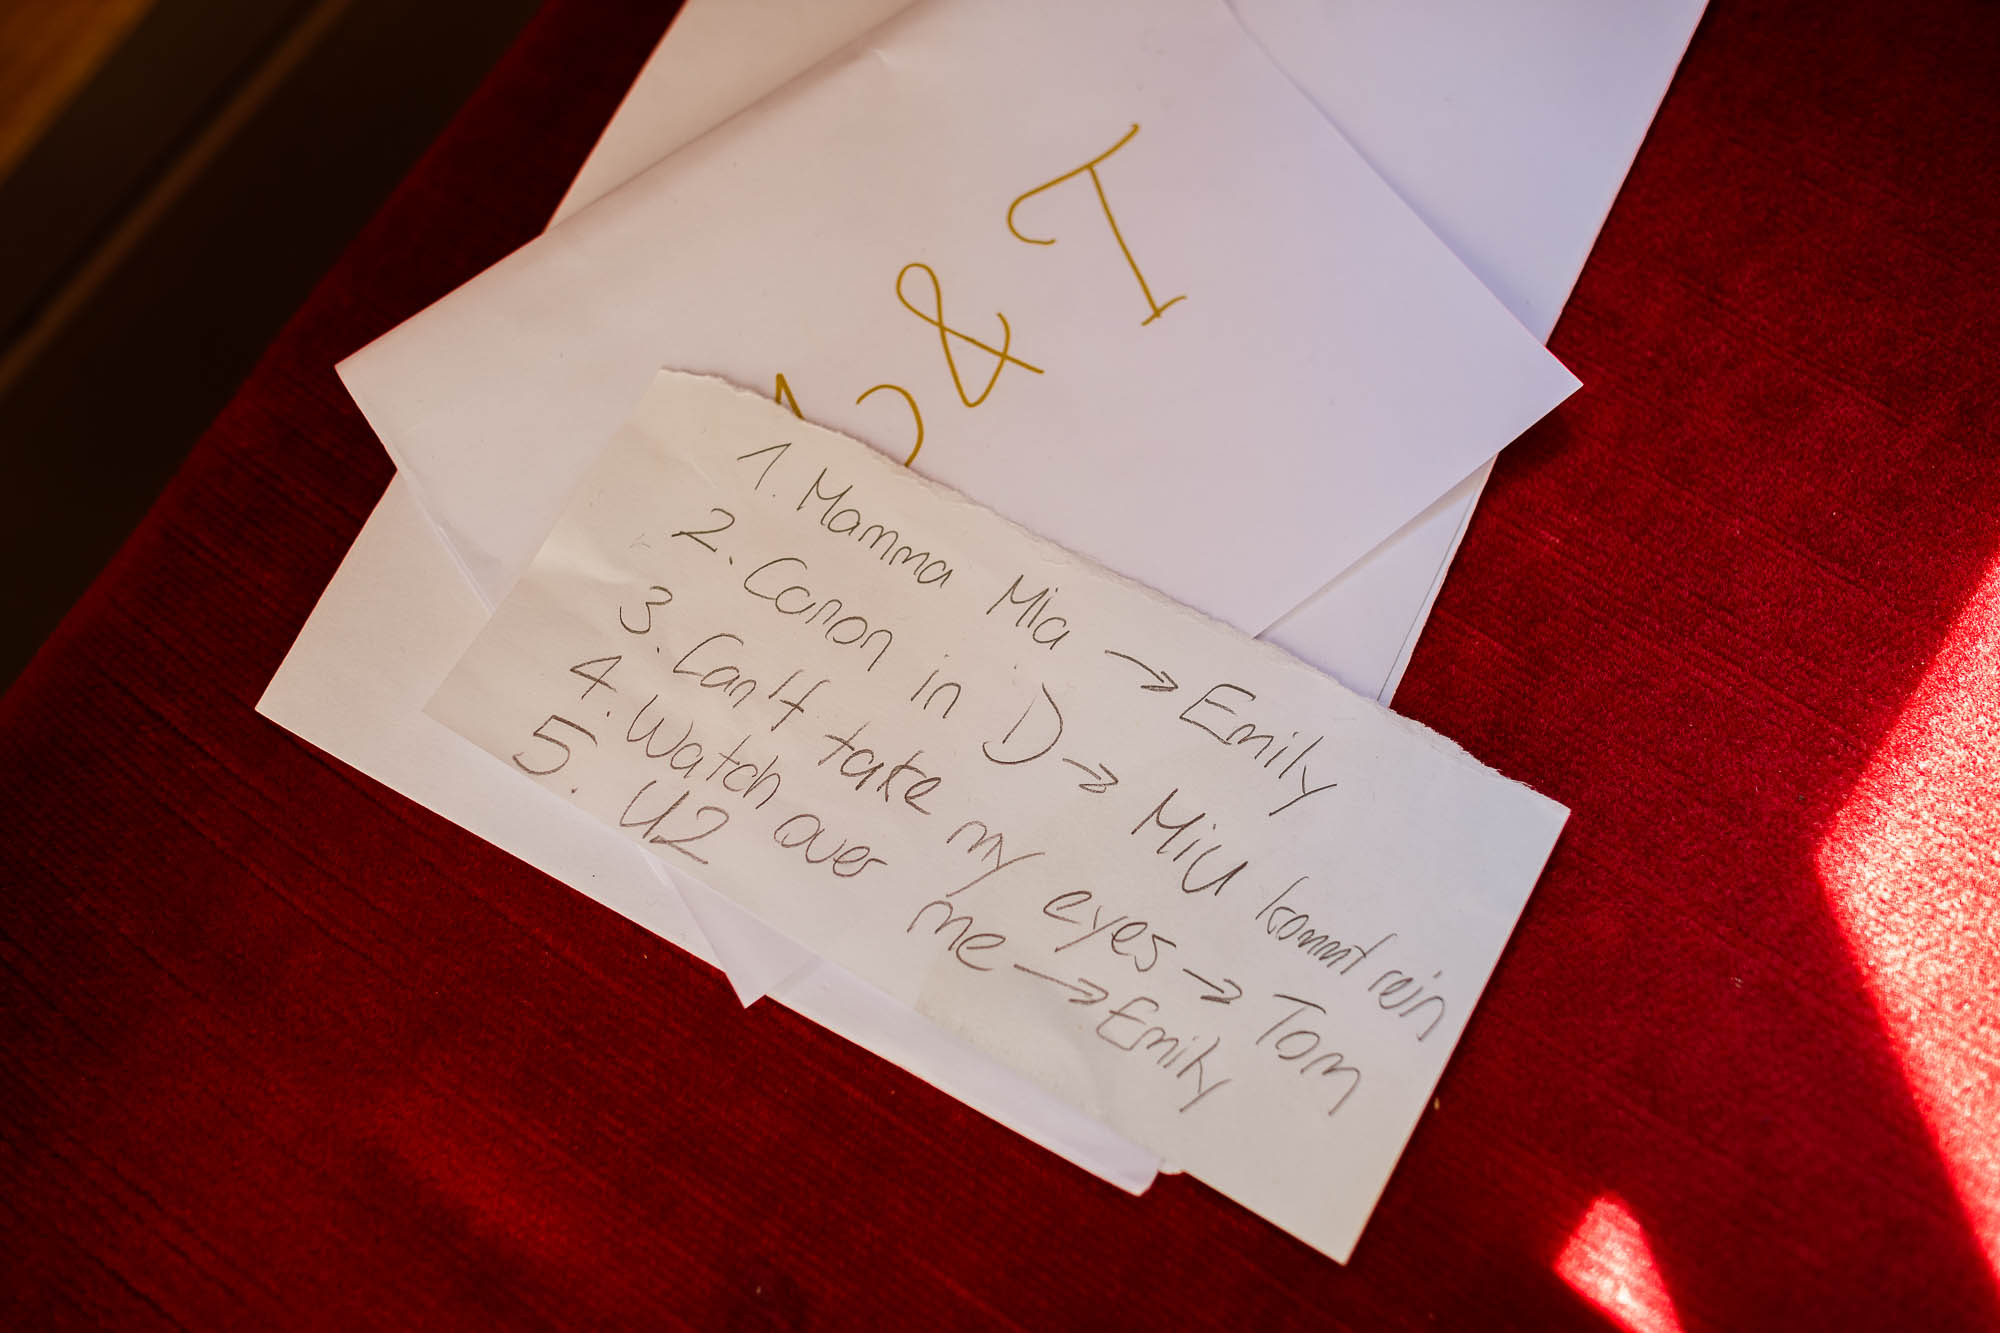 & T
1. Mamma Mia → Emily
2. Canon in D → Miu kommt rein
3. Can't take my eyes → Tom
4. Watch over me → Emily
5. U2